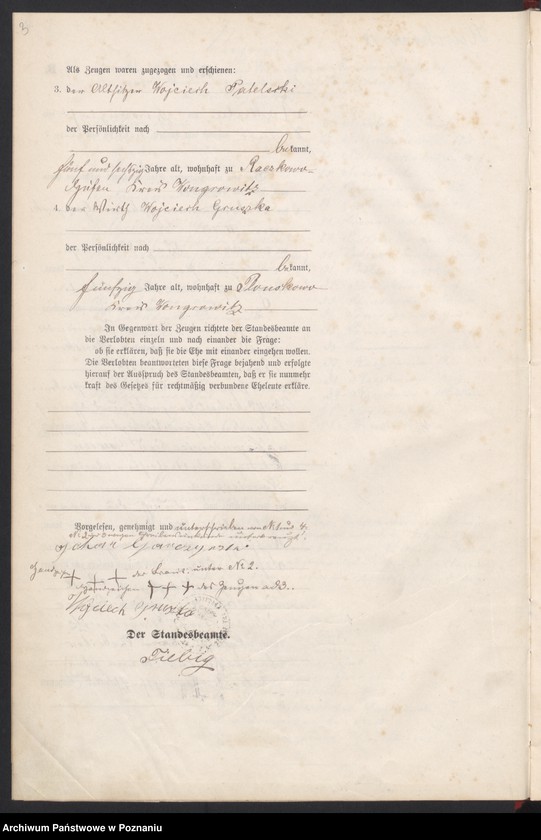 3
Als Zeugen waren zugezogen und erschienen:
3. der Altsitzer Wojciech Patelski
der Persönlichkeit nach
bekannt,
fünf und sechzig Jahre alt, wohnhaft zu Raczkowo-
Hufen Kreis Wongrowitz
4. der Wirth Wojciech Gruszka
der Persönlichkeit nach
bekannt,
fünfzig Jahre alt, wohnhaft zu
Kreis Wongrowitz
In Gegenwart der Zeugen richtete der Standesbeamte an
die Verlobten einzeln und nach einander die Frage:
ob sie erklären, daß sie die Ehe mit einander eingehen wollen.
Die Verlobten beantworteten diese Frage bejahend und erfolgte
hierauf der Ausspruch des Standesbeamten, daß er sie nunmehr
kraft des Gesetzes für rechtmäßig verbundene Eheleute erkläre.
Vorgelesen, genehmigt und unterschrieben von № 1 und 4.
№ 2 und 3 wegen Schreibensunkunde unterkreuzt.
Handzeichen +++ der Braut unter № 2.
Handzeichen +++ des Zeugen ad 3.
Wojciech Gruszka
Der Standesbeamte.
Fiebig
Archiwum Państwowe w Poznaniu